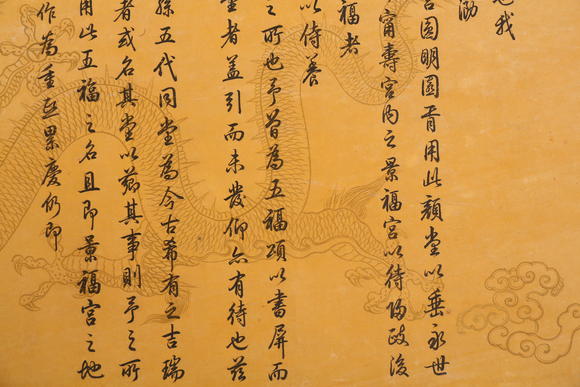 也我
泐
宮圓明園胥用此顏堂以垂永世
甯壽宮內之景福宮以待歸政後
福者
以侍養
之所也予曾為五福頌以書屏而
者蓋引而未發抑亦有待也茲
孫五代同堂為今古希有之吉瑞
者或名其堂以薌其事則予之所
用此五福之名且即景福宮之地
作為重熙累慶仍即